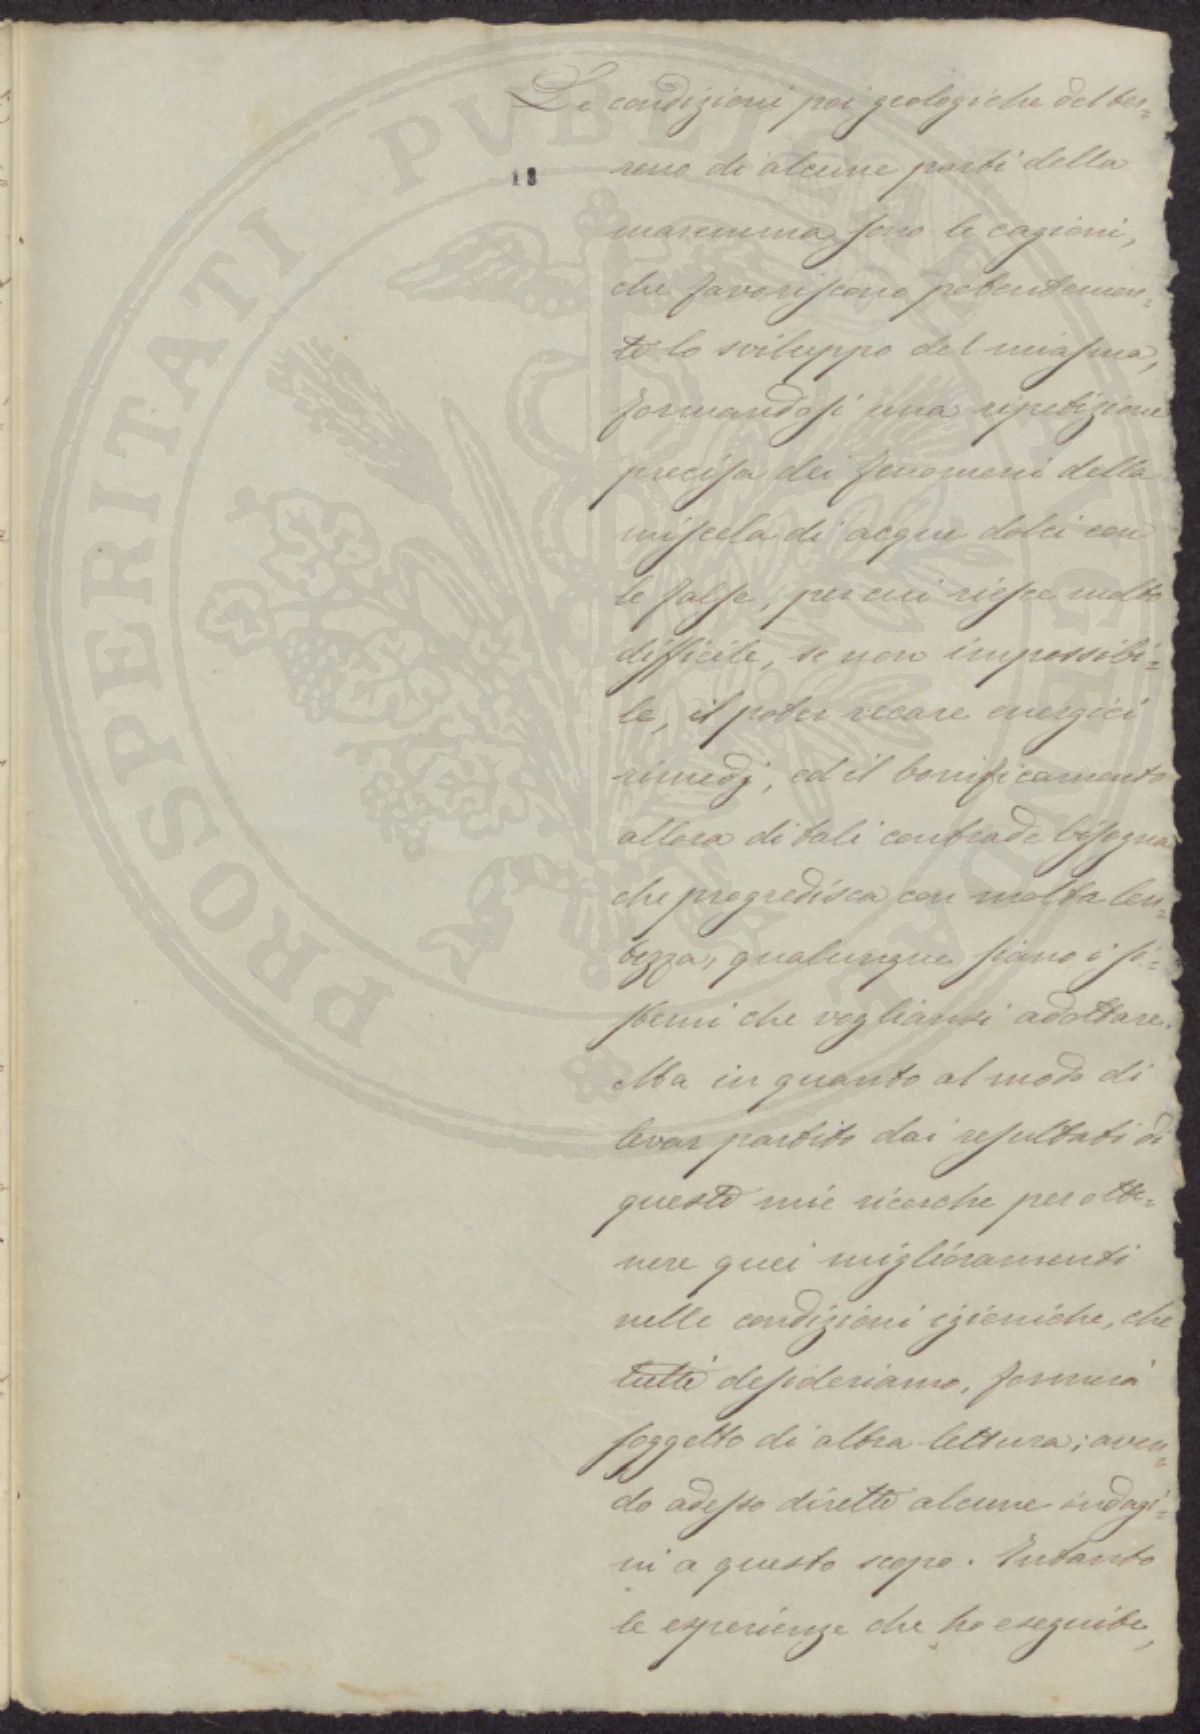 Le condizioni poi geologiche del ter=
18
reno di alcune parti della
maremma sono le cagioni,
che favoriscono potentemen=
te lo sviluppo del miasma,
formandosi una ripetizione
precisa dei fenomeni della
miscela di acque dolci con
le salse, per cui riesce molto
difficile, se non impossibi=
le, il poter recare energici
rimedj, ed il bonificamento
allora di tali contrade bisogna
che progredisca con molta len=
tezza, qualunque siano i si=
stemi che vogliansi adottare.
Ma in quanto al modo di
levar partito dai resultati di
queste mie ricerche per otte=
nere quei miglioramenti
nelle condizioni igieniche, che
tutti desideriamo, formerà
soggetto di altra lettura; aven=
do adesso dirette alcune indagi=
ni a questo scopo. Intanto
le esperienze che ho eseguite,
PROSPERITATI PVBLICAE AVGENDAE